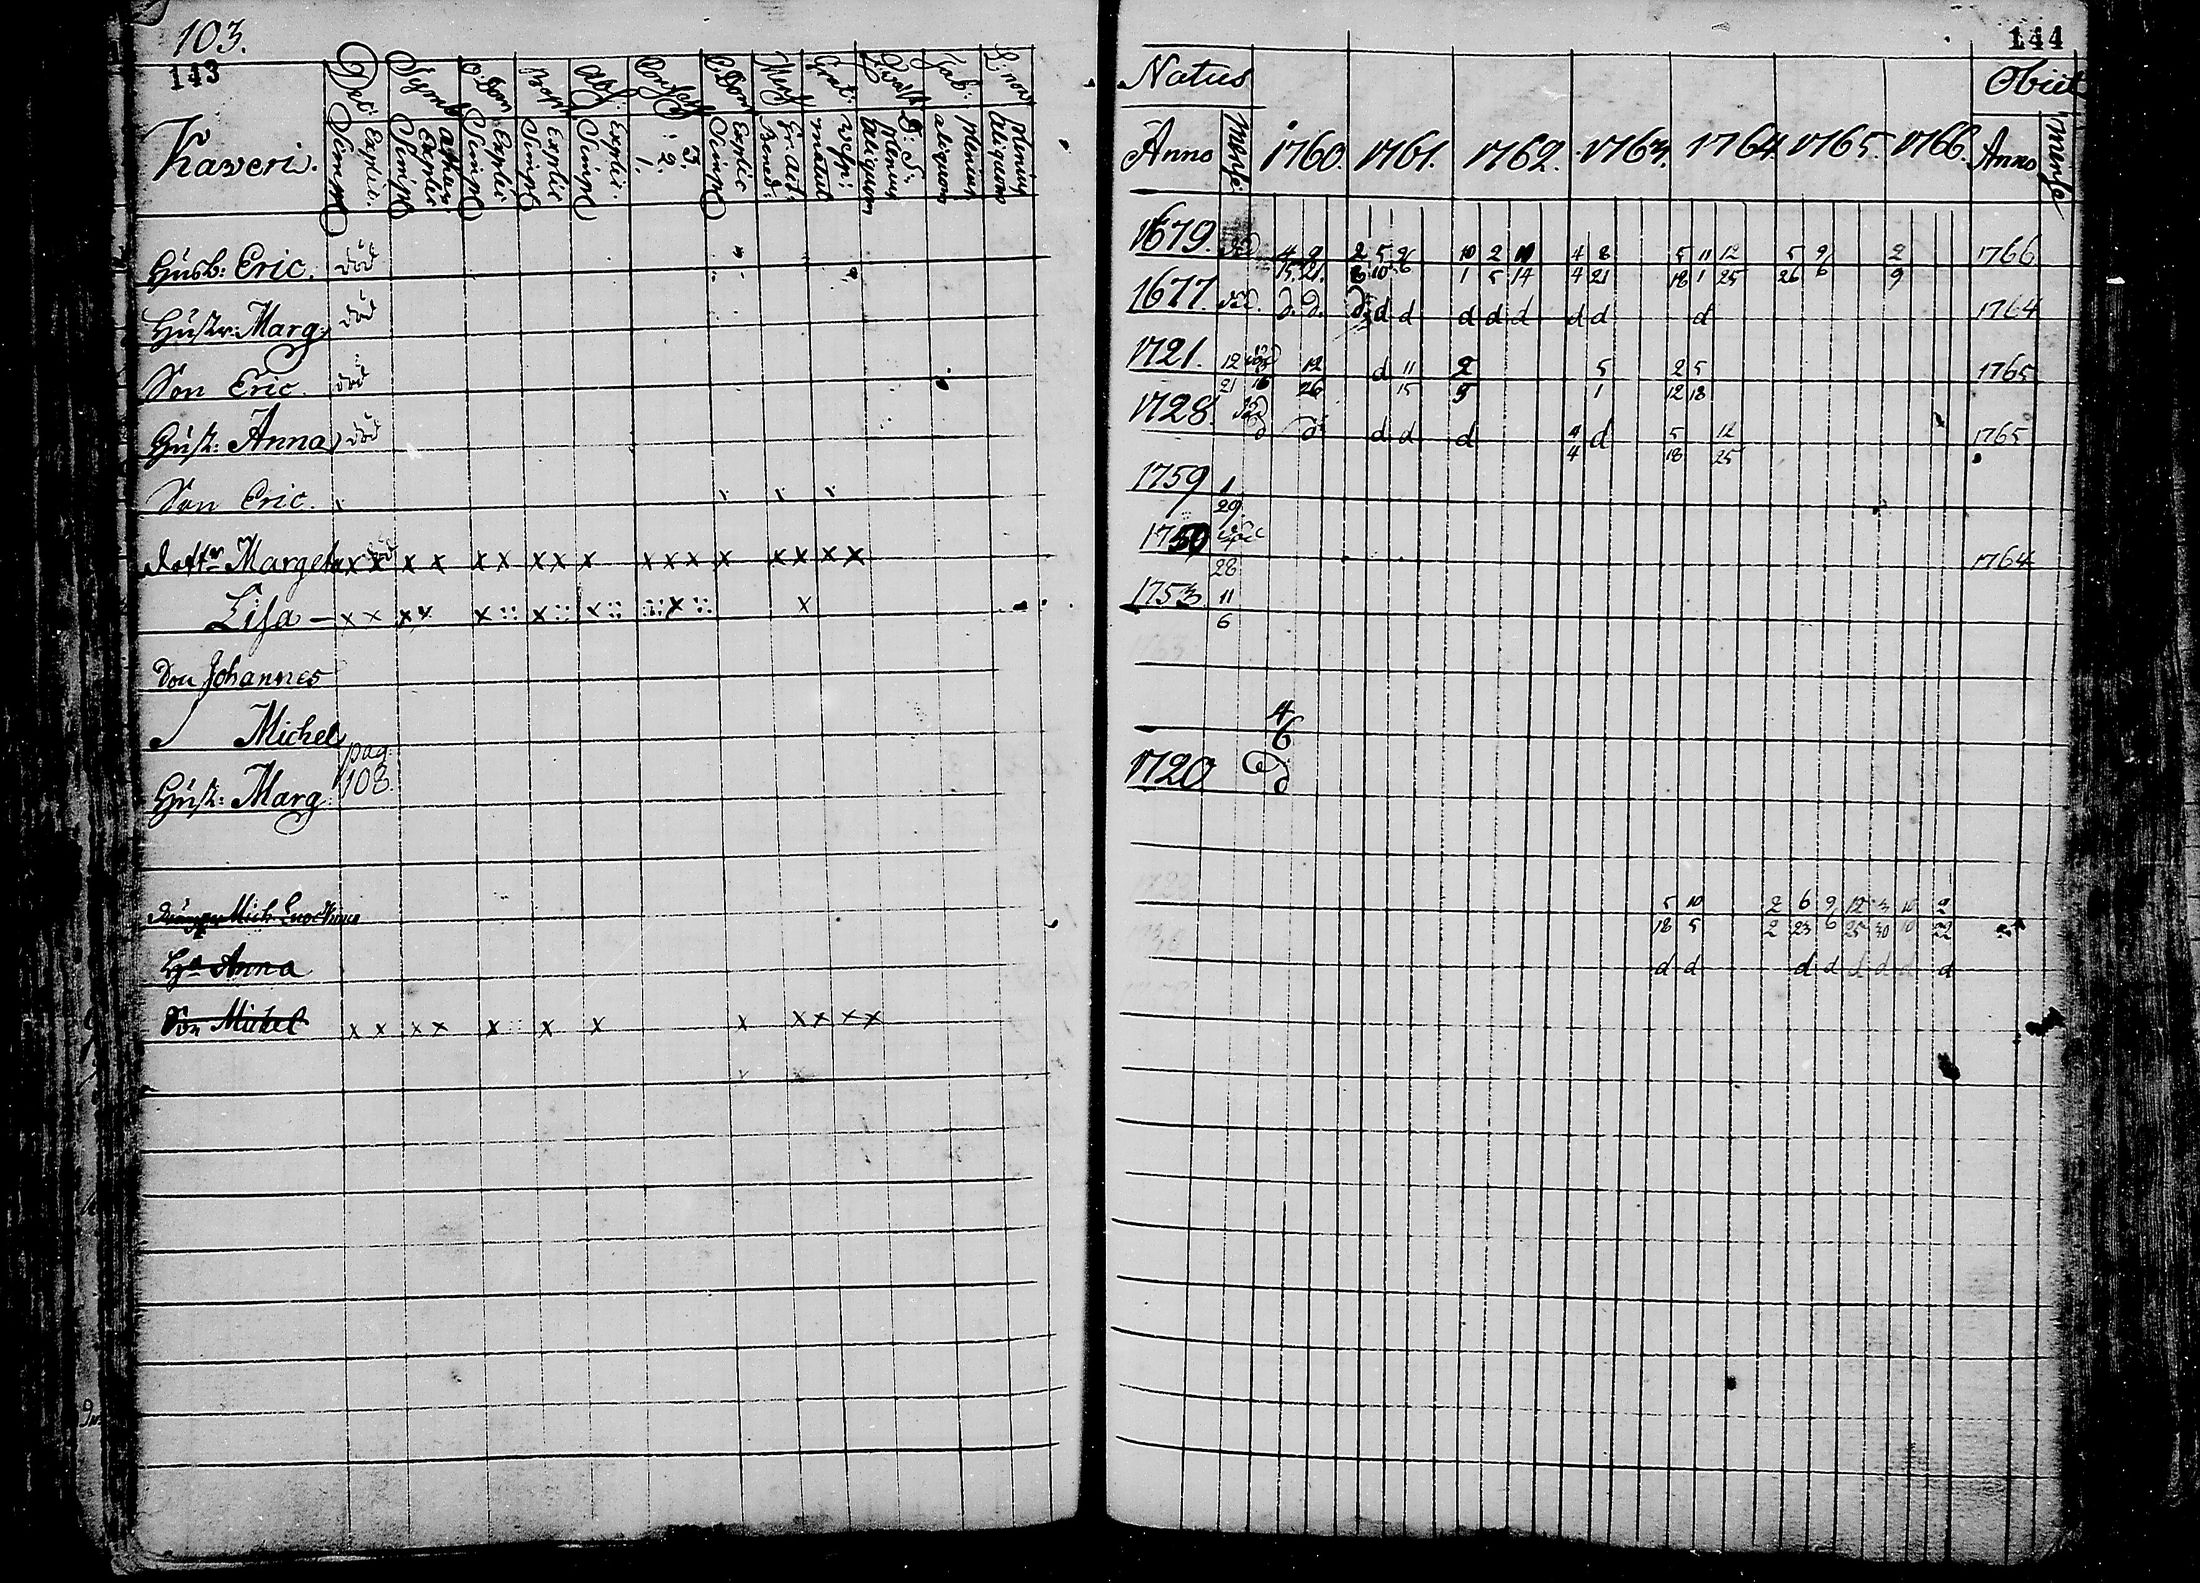 103.
143
Kaveri.
Dec: Simpl Explic.
Symb Simpl Explic Athan:
O. Dom Simpl Explic
Bapt Simpl Explic
Abs: Simpl Explic.
1. 2. 3.
C. Dom Simpl Explic
Mens Bened: Gr. Act:
aliquom plenius
Tab: aliquom plenius
L: non aliquom plenius
Husb: Eric. död
Hustr: Marg: död
Son Eric. död
Hust: Anna död
Son Eric.
dottr Margeta x x x x x x x x x x x x x x x x x
Lisa – x x x x x :: x :: x :: :: x :: x
Son Johannes
Michel
Hust: Marg: pag: 108.
Mich.
Hu Anna
Son Michel x x x x x x x x x x x x
144
Natus
Obiit
Anno Mense 1760. 1761. 1762. 1763. 1764 1765. 1766. Anno Mense
1679. 4 9 2 5 10 2 4 8 5 11 12 5 9 2 1766
15 21. 8 10 1 5 14 4 21 18 1 25 26 6 9
1677. d. d. d. d d d d d d d d 1764
1721. 12 12 d 11 2 5 2 5 1765
21 16 26 15 9 1 12 18
1728. d d d d d 4 d 5 12 1765
4 18 25
1759 1
29.
1750 1764
28
1753 11
6
4
6
1720 d
5 10 2 6 9 12 3 10 2
18 5 2 23 6 25 30 10 22
d d d d d d d d